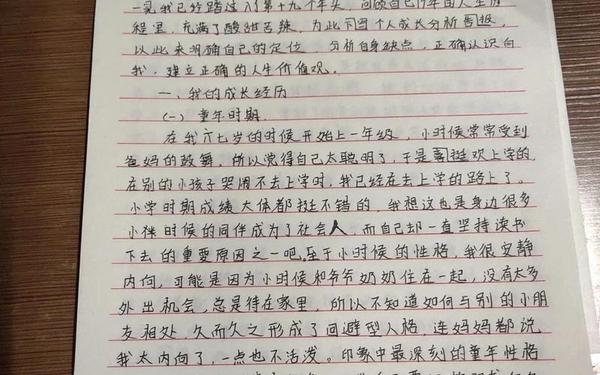 我已经踏过人了第十九个年头，回顾自己19年的人生
程里，充满了酸甜苦辣，为此下面个人成长分析
以此来明确自己的定位，分析自身缺点，正确认识自
我，建立正确的人生价值观。
一、我的成长经历
（一）童年时期
在我六七岁的时候开始上一年级，小时候常常受到
爸妈的鼓舞，所以觉得自己太聪明了，于是喜挺欢上学的，
在别的小孩子哭闹不去上学时，我已经在去上学的路上了。
小学时期成绩大体都挺不错的，我想这也是身边很多
小伙时候的同伴成为了社会人，而自己却一直坚持读书
下去的重要原因之一吧。至于小时候的性格，我很安静
内向，可能是因为小时候和爷爷奶奶住在一起，没有太多
外出机会，总是待在家里，所以不知道如何与别的小朋
友相处，久而久之形成了回避型人格，连妈妈都说
我太内向了，一点也不活泼。印象中最深刻的童年性格